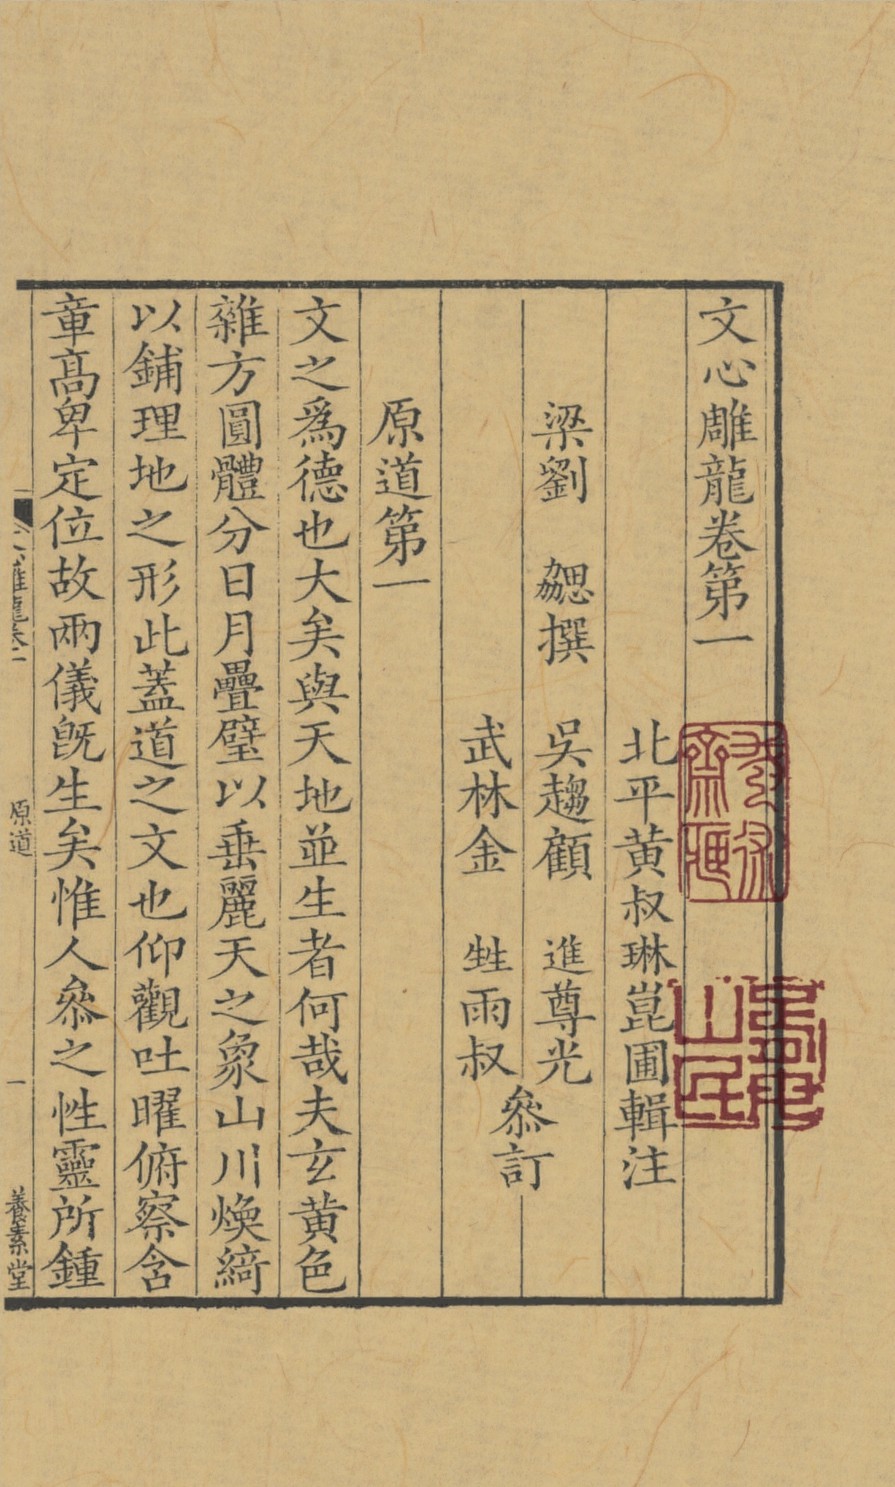 文心雕龍卷第一
北平黃叔琳崑圃輯注
梁劉勰撰 吳趨顧進尊光
武林金甡雨叔
參訂
原道第一
文之爲德也大矣與天地並生者何哉夫玄黃色
雜方圓體分日月疊璧以垂麗天之象山川煥綺
以鋪理地之形此蓋道之文也仰觀吐曜俯察含
章高卑定位故兩儀旣生矣惟人參之性靈所鍾
原道
一
養素堂